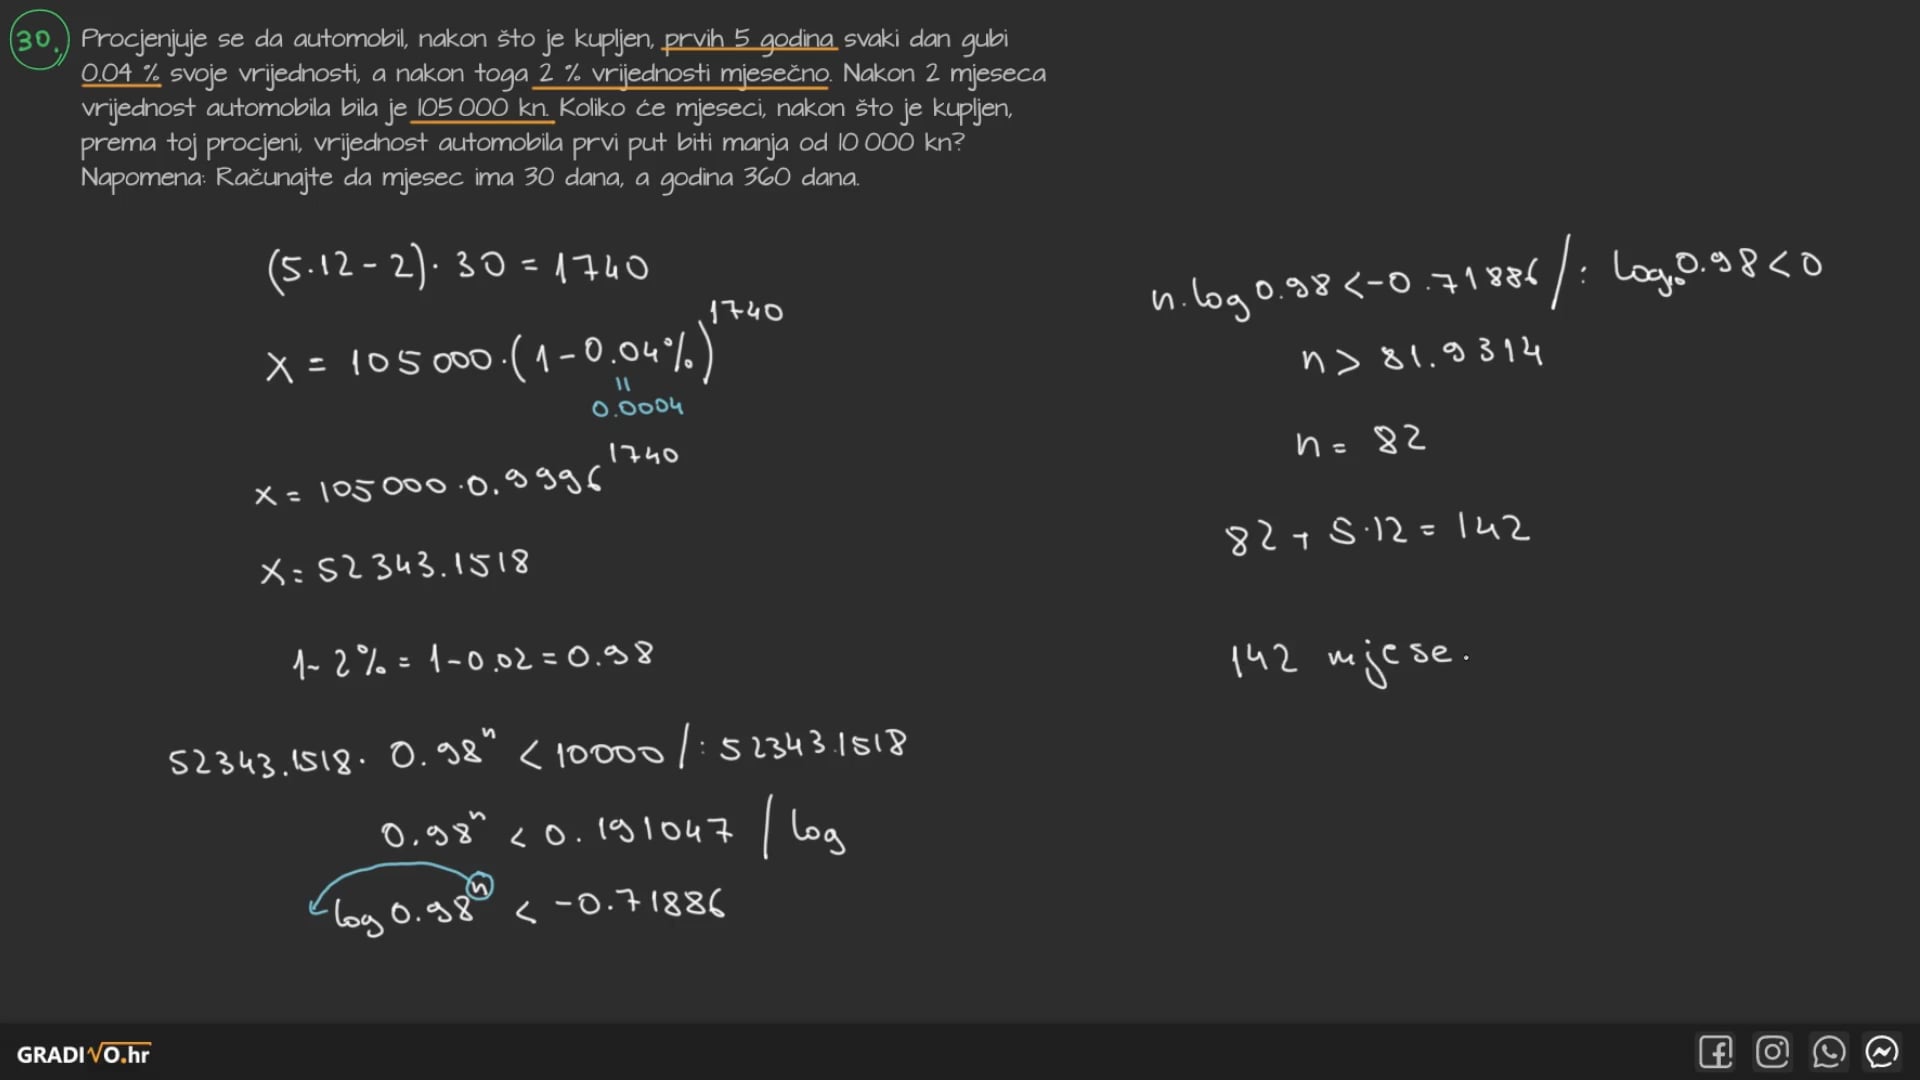 30. Procjenjuje se da automobil, nakon što je kupljen, prvih 5 godina svaki dan gubi
0.04 % svoje vrijednosti, a nakon toga 2 % vrijednosti mjesečno. Nakon 2 mjeseca
vrijednost automobila bila je 105 000 kn. Koliko će mjeseci, nakon što je kupljen,
prema toj procjeni, vrijednost automobila prvi put biti manja od 10 000 kn?
Napomena: Računajte da mjesec ima 30 dana, a godina 360 dana.
(5·12-2)·30=1740
x = 105 000·(1-0.04%)^1740
=
0.0004
x = 105 000·0.9996^1740
x = 52343.1518
1-2% = 1-0.02 = 0.98
52343.1518·0.98^n < 10000 /: 52343.1518
0.98^n < 0.191047 / log
log 0.98^n < -0.71886
n·log 0.98 < -0.71886 /: log 0.98 < 0
n > 81.9314
n = 82
82 + 5·12 = 142
142 mjese.
GRADIVO.hr